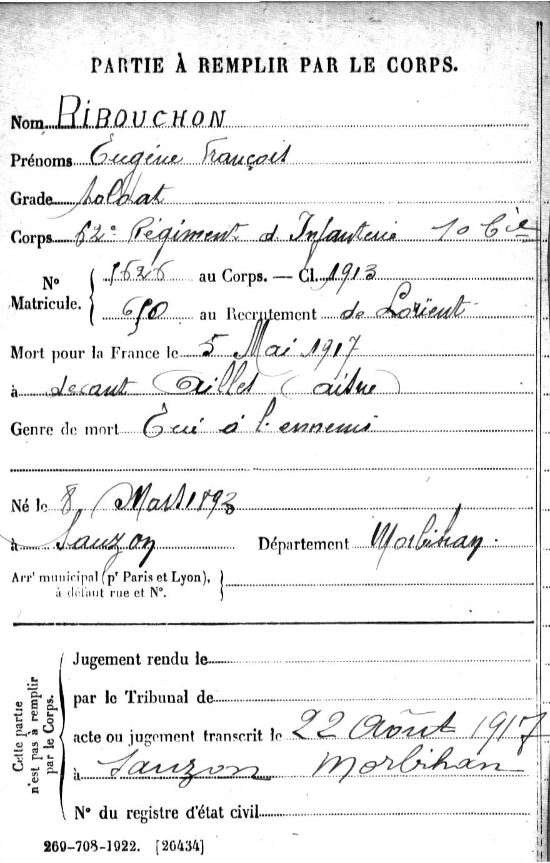 PARTIE À REMPLIR PAR LE CORPS.
Nom RIBOUCHON
Prénoms Eugène François
Grade soldat
Corps 62e Régiment d Infanterie 10 Cie
N° Matricule. 5626 au Corps. — Cl. 1913
690 au Recrutement de Lorient
Mort pour la France le 5 Mai 1917
à devant Aillet (aisne)
Genre de mort Tué à l'ennemi
Né le 8 Mars 1893
à Sauzon Département Morbihan.
Arrt municipal (pr Paris et Lyon), à défaut rue et N°.
Cette partie n'est pas à remplir par le Corps.
Jugement rendu le
par le Tribunal de
acte ou jugement transcrit le 22 Août 1917
à Sauzon Morbihan
N° du registre d'état civil
269-708-1922. [26434]